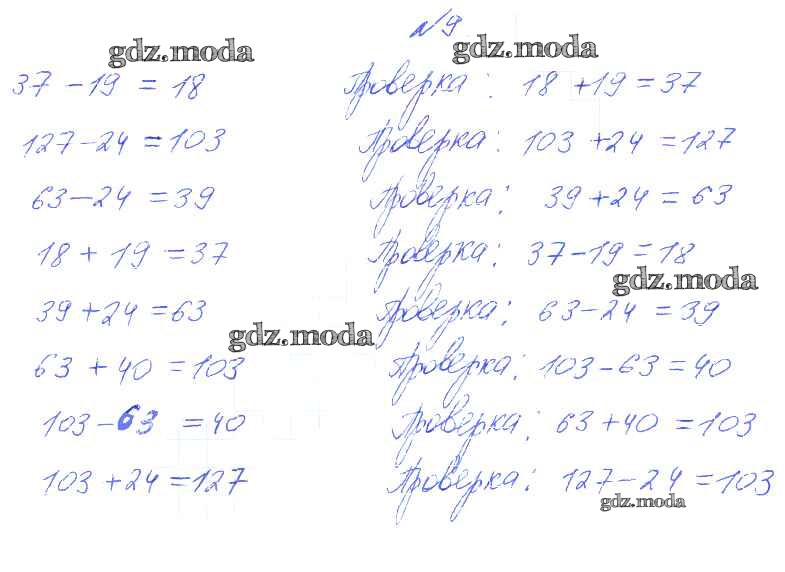 №9
gdz.moda gdz.moda
37 - 19 = 18 Проверка: 18 + 19 = 37
127 - 24 = 103 Проверка: 103 + 24 = 127
63 - 24 = 39 Проверка: 39 + 24 = 63
18 + 19 = 37 Проверка: 37 - 19 = 18
gdz.moda
39 + 24 = 63 Проверка: 63 - 24 = 39
gdz.moda
63 + 40 = 103 Проверка: 103 - 63 = 40
103 - 63 = 40 Проверка: 63 + 40 = 103
103 + 24 = 127 Проверка: 127 - 24 = 103
gdz.moda